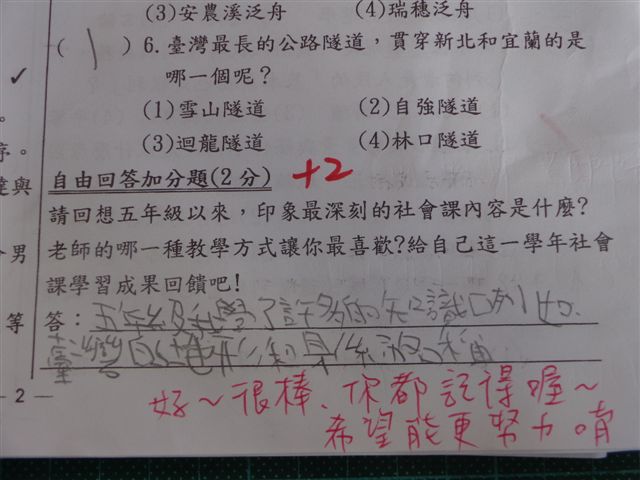 (3)安農溪泛舟 (4)瑞穗泛舟
( 1 )6.臺灣最長的公路隧道，貫穿新北和宜蘭的是
哪一個呢？
(1)雪山隧道 (2)自強隧道
(3)迴龍隧道 (4)林口隧道
自由回答加分題(2分) +2
請回想五年級以來，印象最深刻的社會課內容是什麼?
老師的哪一種教學方式讓你最喜歡?給自己這一學年社會
課學習成果回饋吧!
答：五年級我學了許多的知識，例如：
臺灣的地形
好～很棒、你都記得喔～
希望能更努力唷
✓
。
序。
與
男
等
- 2 -